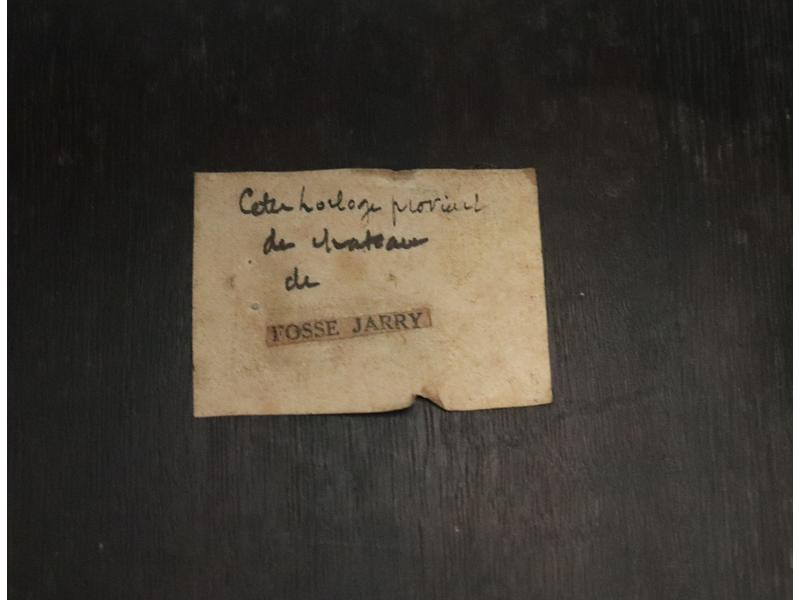 Cette horloge provient
du chateau
de
FOSSE JARRY